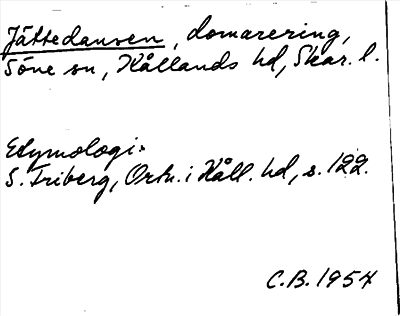 Jättedansen, domarering,
Söne sn, Kållands hd, Skar. l.
Etymologi:
S. Friberg, Ortn. i Kåll. hd, s. 122.
C.B. 1954